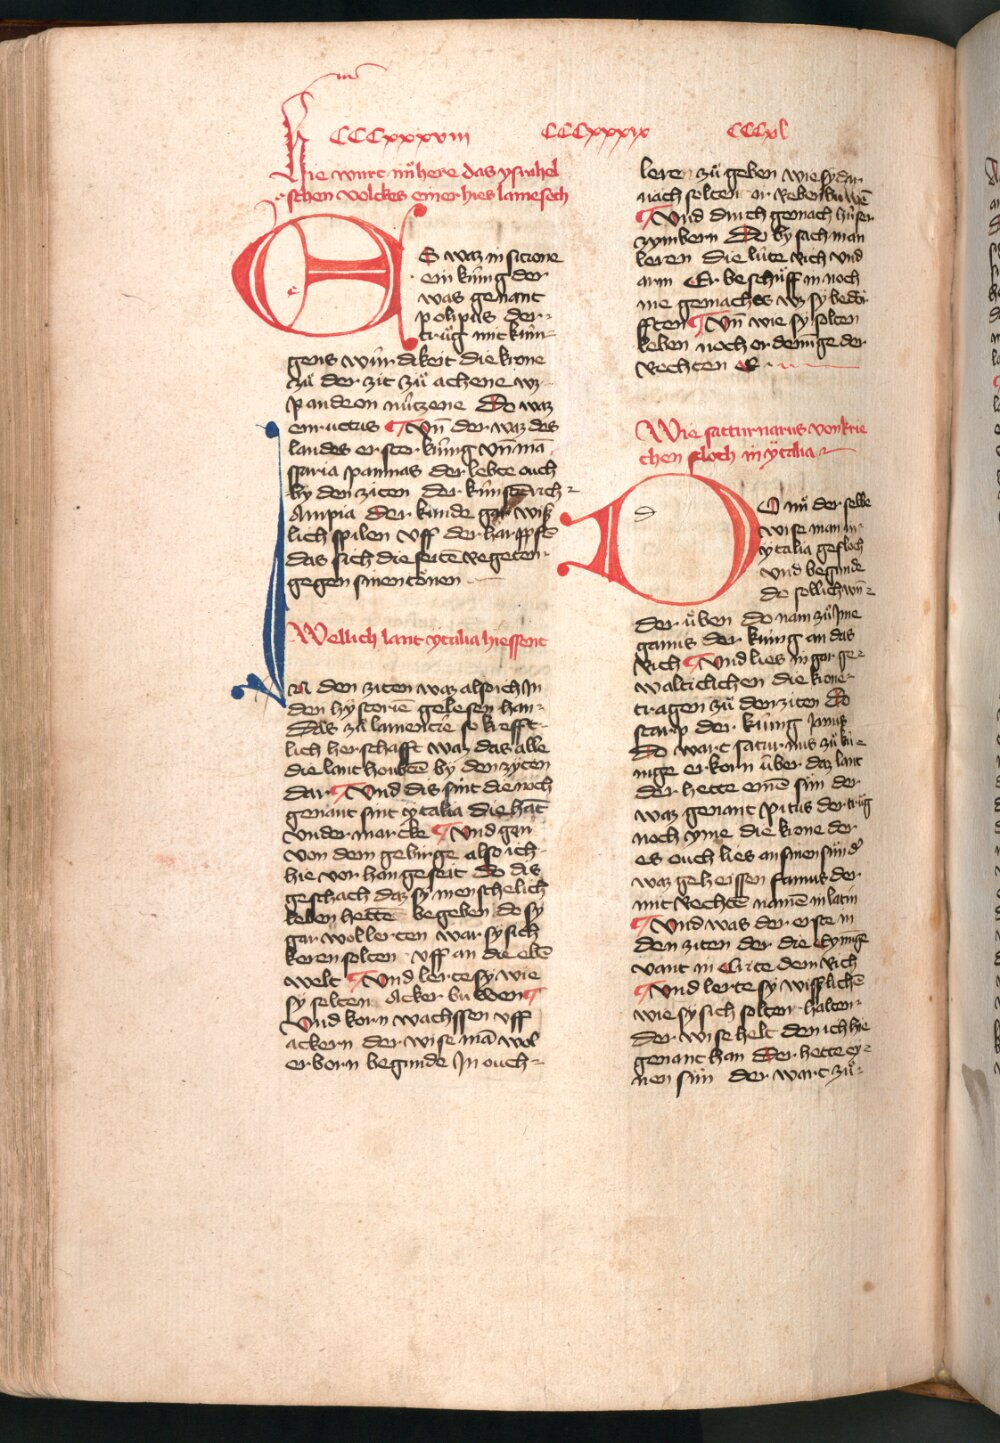 CCCxxxviii CCCxxxix CCCxl
Hie wirt nü here das ysrahel
schen volckes einer hies lamesech
Es waz in sicione
ein küng der
was genant
polipus der
trüg mit küni
gens wirdikeit die krone
zü der zit zü achene wz
pandeon nützene Do waz
enructus ¶ Vn̄ der waz des
landes erster küng vn̄ mā
sparia pannas der lebte ouch
by den ziten der künstrich
Ampia Der kunde gar wiß
lich spilen vff der harppfē
das sich die seitē regeten
gegen sinen tönen
Wellich lant ytalia hiessent
In den ziten waz als ich In
den hystoriē gelesen han
Das zü lamentre so krefft
lich herschafft waz das alle
die lant houbtē by den zyten
dar ¶ Vnd dis sint die noch
genant sint ytalia die hāt
vnder marcke ¶ Vnd gan
von dem gebirge also ich
hie vor han geseit do dis
geschach daz sy menschelich
leben hette begeben do sy
gar wol lerten war sy sich
keren solten vff an die ebē
welt ¶ Vnd lerte sy wie
sy solten Acker buwen ¶
Vnd korn wachssen vff
ackern der wise mā wol
erborn begunde In ouch
leren zü geben wie sy dar
nach solten or reben buwē
¶ Vnd durch gemach hüser
zymbern Do by sach man
leren die lüte rich vnd
arm Er beschüff in noch
me gemaches wz sy bedör
fften ¶ Vn̄ wie sy solten
leben noch ordenunge der
rechten E
Wie satturnarus von krie
chen floch in ytalia
Do nü der selbe
wise man in
ytalia gefloch
vnd begunde
do sollich wun
der üben do nam zü Ime
ganus der küng an das
rich ¶ Vnd lies in gar ge
walticlichen die krone
tragen zü den ziten Do
starp der küng Janus
Do wart saturnus zü kü
nige erkorn über daz lant
der hette einē sün der
waz genant pitus der trüg
noch yme die krone der
es ouch lies an sinen sün d'
waz geheissen famus der
mit rechtē namē in latin
¶ Vnd was der erste in
den ziten der die
vant in Circe dem rich
¶ Vnd lerte sy wisslichē
wie sy sich solten halten
der wise helt den ich hie
genant han Der hette ey
nen sün der wart zü